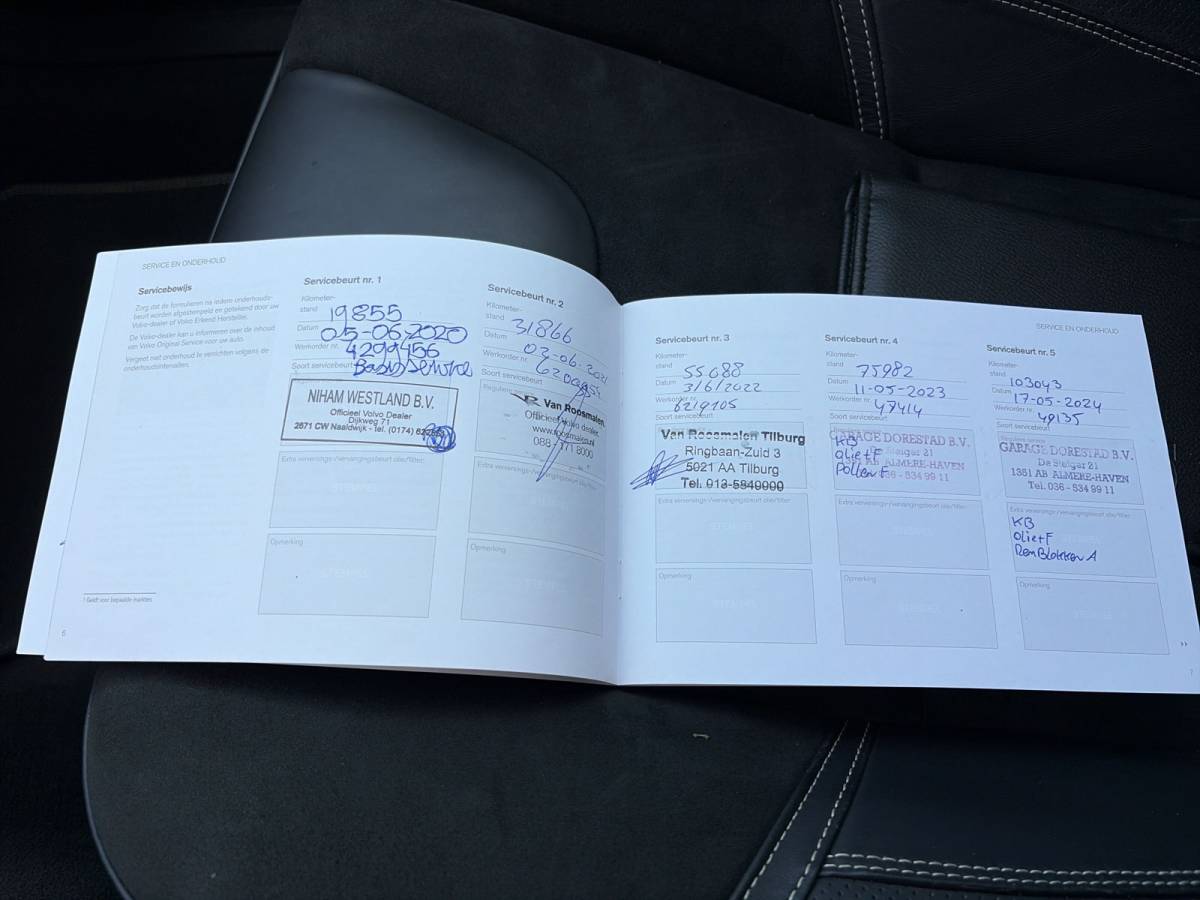 SERVICE EN ONDERHOUD
Servicebewijs
Zorg dat de formulieren na iedere onderhouds-
beurt worden afgestempeld en getekend door uw
Volvo-dealer of Volvo Erkend Hersteller.
De Volvo-dealer kan u informeren over de inhoud
van Volvo Original Service voor uw auto.
Vergeet niet onderhoud te verrichten volgens de
onderhoudsintervallen.
Geldt voor bepaalde markten.
6
Servicebeurt nr. 1
Kilometer-
stand 19855
Datum 05-06-2020
Werkorder nr. 4299456
Soort servicebeurt Basis Service
NIHAM WESTLAND B.V.
Officieel Volvo Dealer
Dijkweg 71
2671 CW Naaldwijk - tel. (0174)
Extra verversings-/vervangingsbeurt olie/filter:
Opmerking
Servicebeurt nr. 2
Kilometer-
stand 31866
Datum 02-06-2021
Werkorder nr.
Soort servicebeurt
Van Roosmalen.
Officieel Volvo dealer
www.roosmalen.nl
088 - 8000
Extra verversings-/vervangingsbeurt olie/filter:
Opmerking
SERVICE EN ONDERHOUD
Servicebeurt nr. 3
Kilometer-
stand 55688
Datum 3/6/2022
Werkorder nr. 6219105
Soort servicebeurt
Van Roosmalen Tilburg
Ringbaan-Zuid 3
5021 AA Tilburg
Tel. 013-5840000
Extra verversings-/vervangingsbeurt olie/filter:
STEMPEL
Opmerking
STEMPEL
Servicebeurt nr. 4
Kilometer-
stand 75982
Datum 11-05-2023
Werkorder nr. 47414
Soort servicebeurt
GARAGE DORESTAD B.V.
De Steiger 21
AB ALMERE-HAVEN
036 - 534 99 11
KB
olie+F
Pollen F
Extra verversings-/vervangingsbeurt olie/filter:
STEMPEL
Opmerking
STEMPEL
Servicebeurt nr. 5
Kilometer-
stand 103043
Datum 17-05-2024
Werkorder nr. 49135
Soort servicebeurt
GARAGE DORESTAD B.V.
De Steiger 21
1351 AB ALMERE-HAVEN
Tel. 036 - 534 99 11
Extra verversings-/vervangingsbeurt olie/filter:
KB
olie+F
RemBlokken A
Opmerking
STEMPEL
7